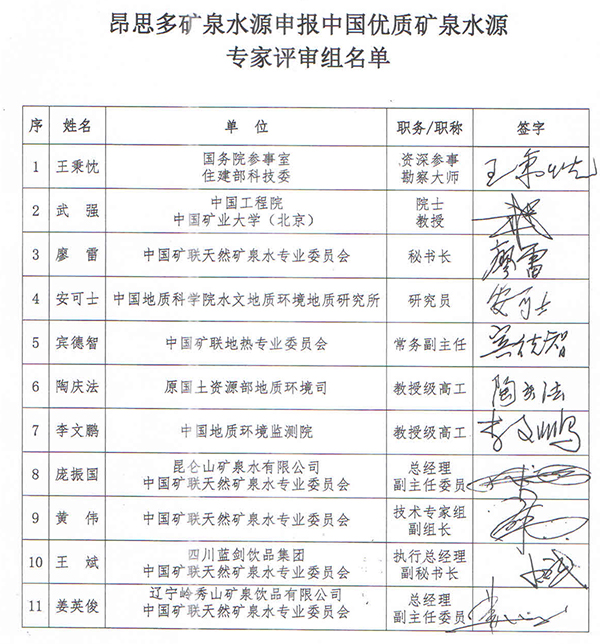 昂思多矿泉水源申报中国优质矿泉水源
专家评审组名单
序 姓名 单 位 职务/职称 签字
1 王秉忱 国务院参事室 资深参事 王秉忱
住建部科技委 勘察大师
2 武 强 中国工程院 院士
中国矿业大学（北京） 教授
3 廖 雷 中国矿联天然矿泉水专业委员会 秘书长 廖雷
4 安可士 中国地质科学院水文地质环境地质研究所 研究员 安可士
5 宾德智 中国矿联地热专业委员会 常务副主任 宾德智
6 陶庆法 原国土资源部地质环境司 教授级高工 陶庆法
7 李文鹏 中国地质环境监测院 教授级高工 李文鹏
8 庞振国 昆仑山矿泉水有限公司 总经理
中国矿联天然矿泉水专业委员会 副主任委员
9 黄 伟 中国矿联天然矿泉水专业委员会 技术专家组
副组长
10 王 斌 四川蓝剑饮品集团 执行总经理
中国矿联天然矿泉水专业委员会 副秘书长
11 姜英俊 辽宁岭秀山矿泉饮品有限公司 总经理
中国矿联天然矿泉水专业委员会 副主任委员